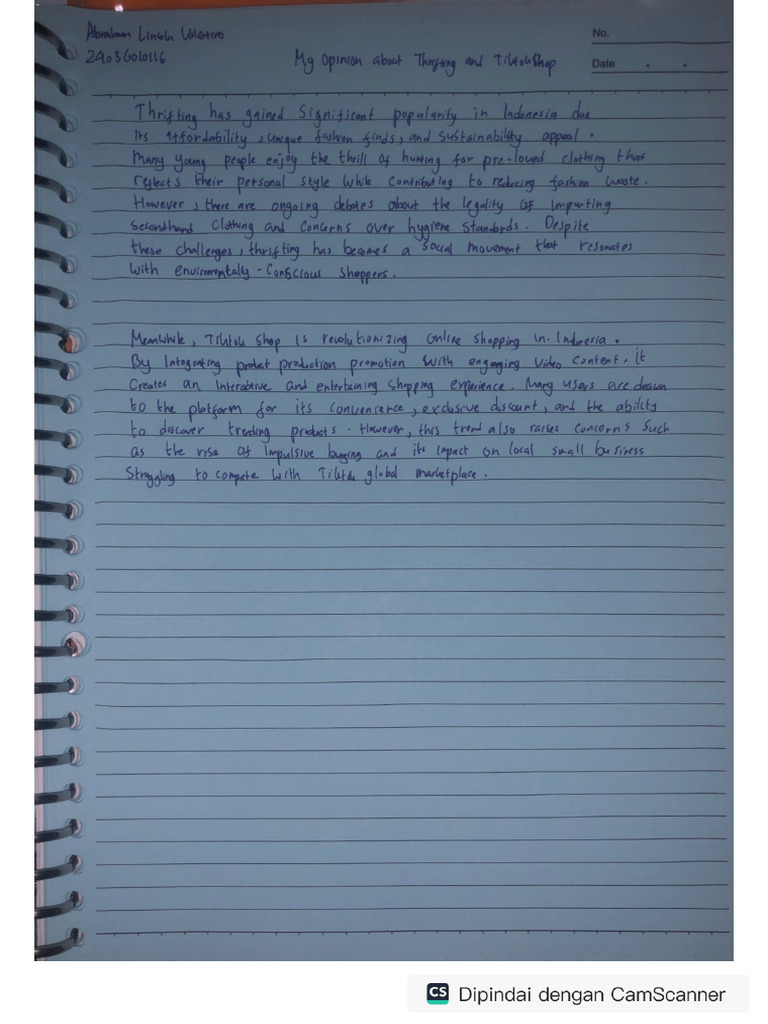 Abraham Lincoln Valetino
No.
24036010116
My Opinion about Thrifting and TiktokShop
Date
Thrifting has gained significant popularity in Indonesia due
Its affordability, unique fashion finds, and sustainability appeal.
Many young people enjoy the thrill of hunting for pre-loved clothing that
reflects their personal style while contributing to reducing fashion waste.
However, there are ongoing debates about the legality of importing
secondhand clothing and concerns over hygiene standards. Despite
these challenges, thrifting has becomes a social movement that resonates
with environmentaly-conscious shoppers.
Meanwhile, Tiktok Shop is revolutionizing online shopping in Indonesia.
By Integrating product promotion with engaging video content, it
Creates an Interactive and entertaining shopping experience. Many users are drawn
to the platform for its convenience, exclusive discount, and the ability
to discover trending products. However, this trend also raises concerns such
as the rise of impulsive buying and its impact on local small business
Struggling to compete with Tiktok global marketplace.
CS Dipindai dengan CamScanner